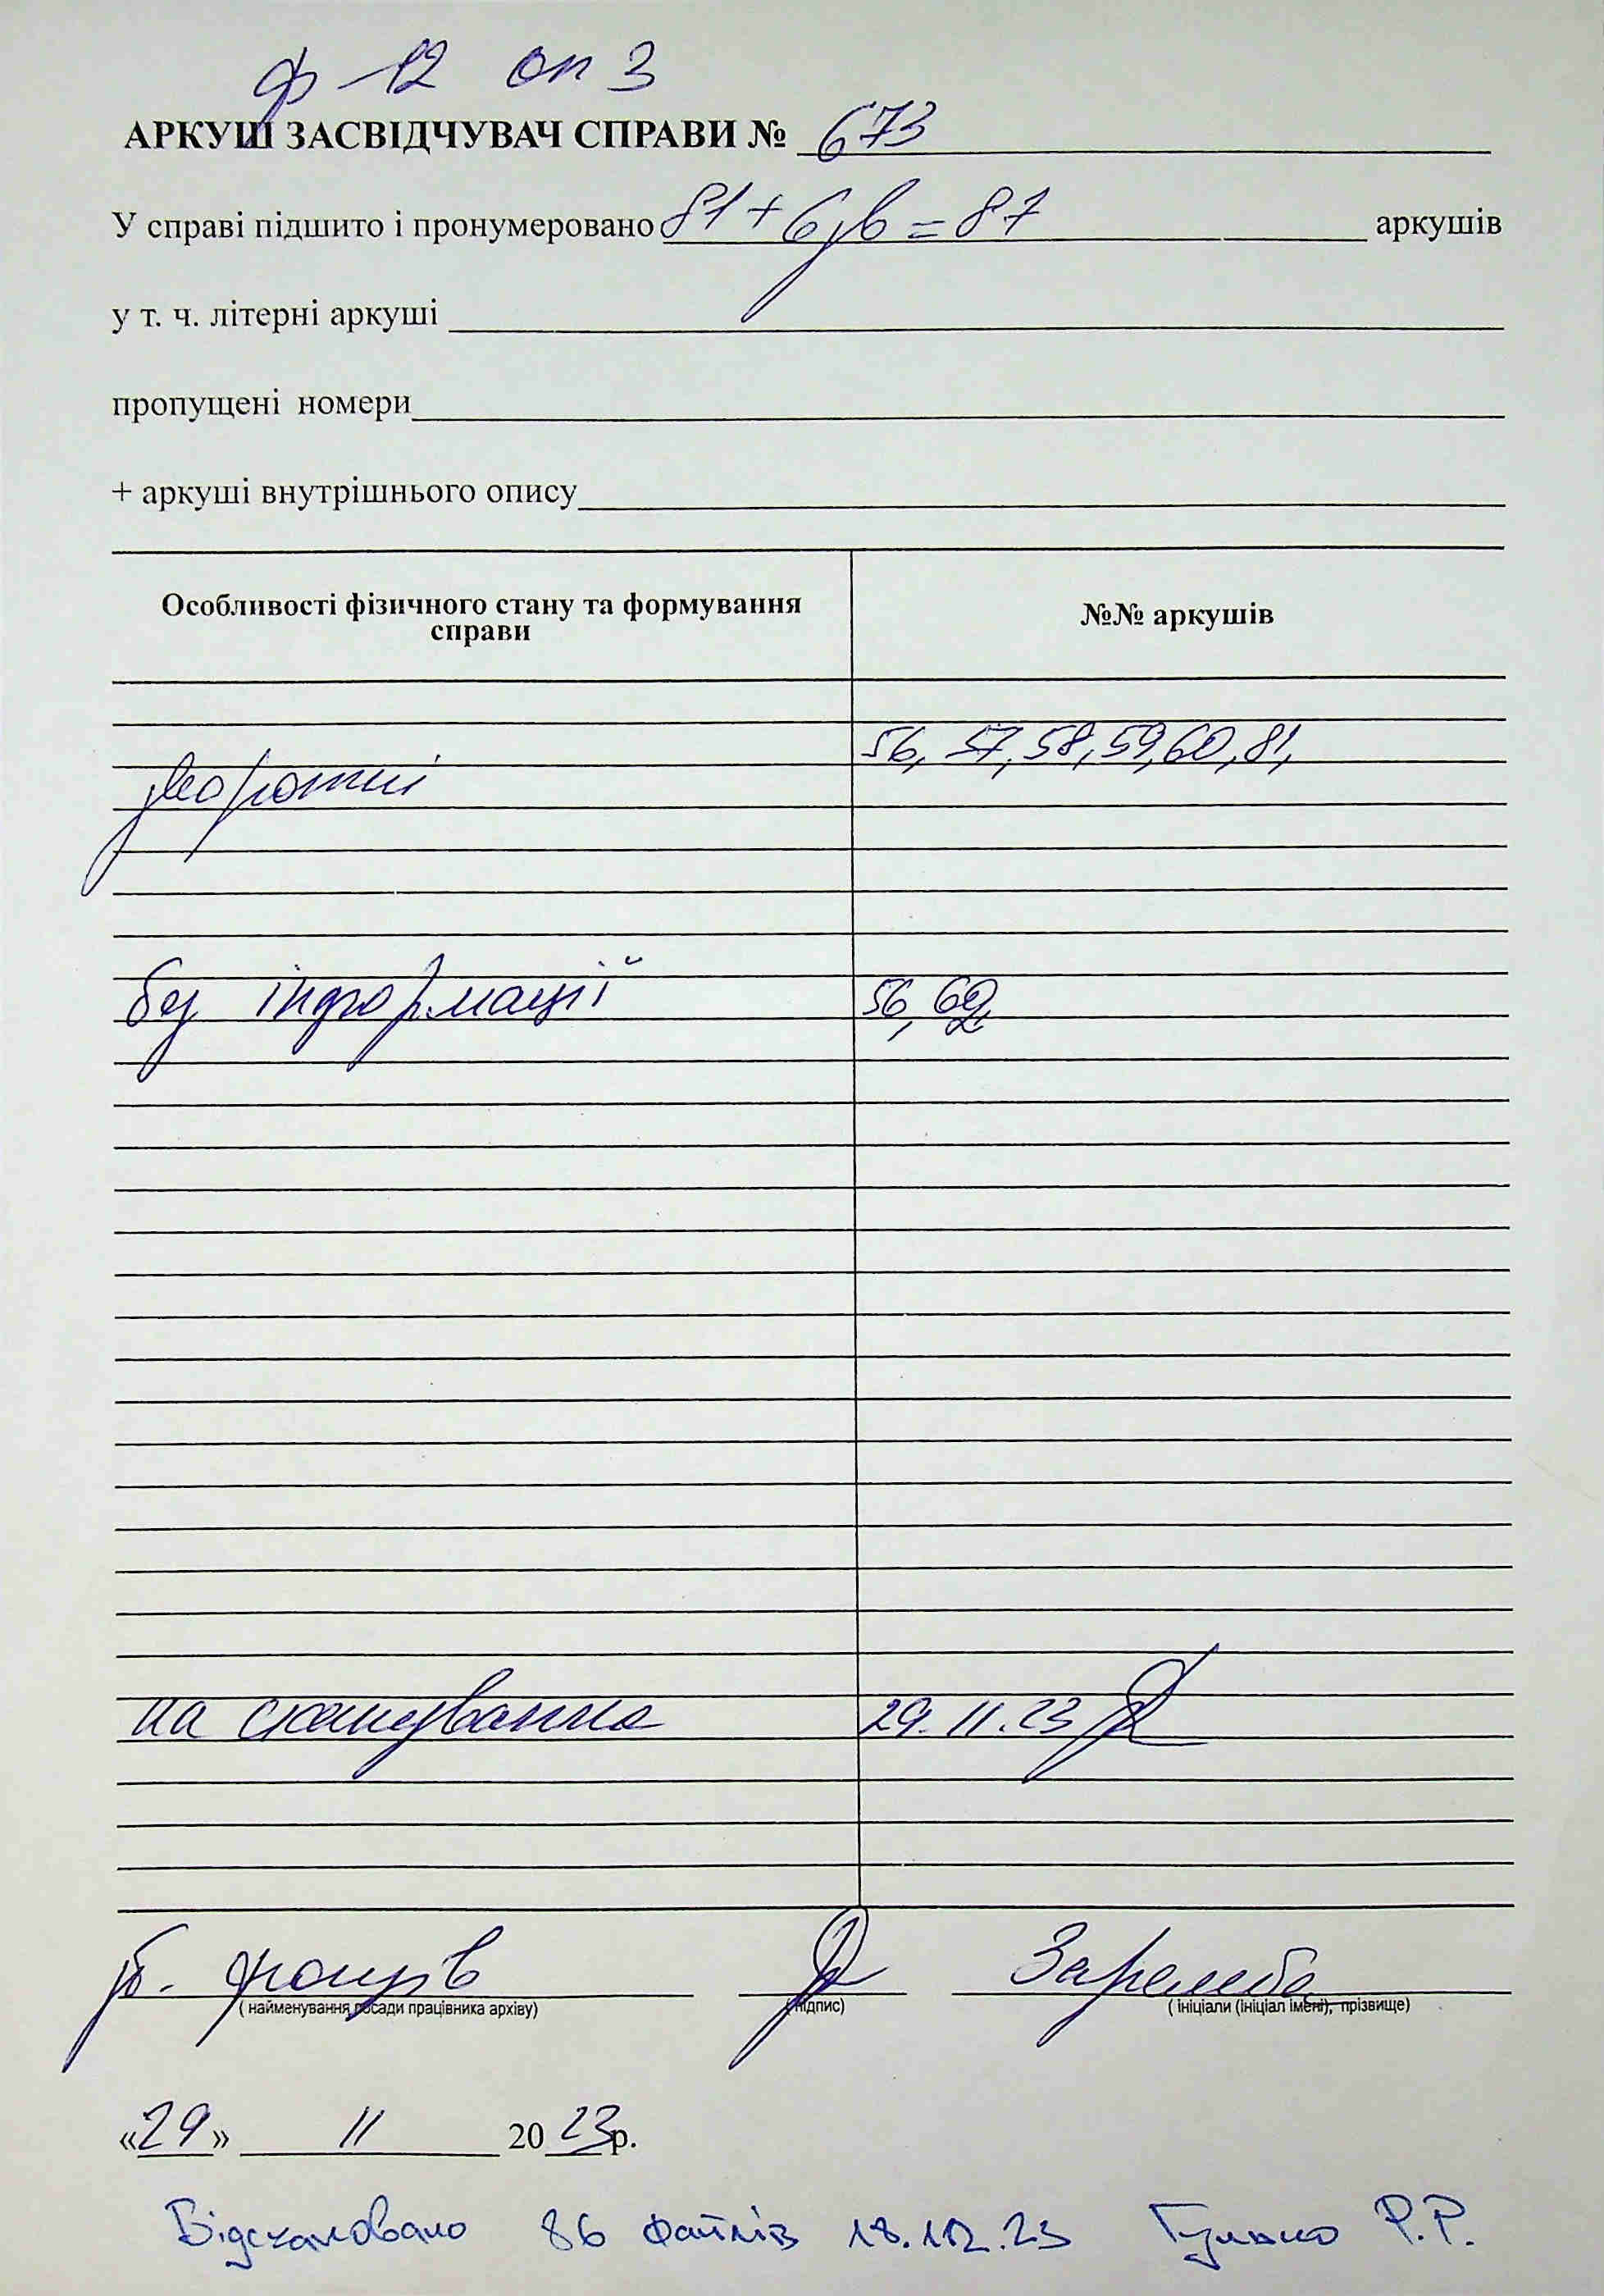 ф 12 оп 3
АРКУШ ЗАСВІДЧУВАЧ СПРАВИ № 673
У справі підшито і пронумеровано 81 + 6 зв = 87 аркушів
у т. ч. літерні аркуші
пропущені номери
+ аркуші внутрішнього опису
Особливості фізичного стану та формування справи №№ аркушів
56, 57, 58, 59, 60, 81,
зворотні
без інформації 56, 62,
на сканування 29.11.23
фондів Заремба
( найменування посади працівника архіву) (підпис) ( ініціали (ініціал імені), прізвище)
«29» 11 2023р.
Відскановано 86 файлів 18.12.23 Р.Р.